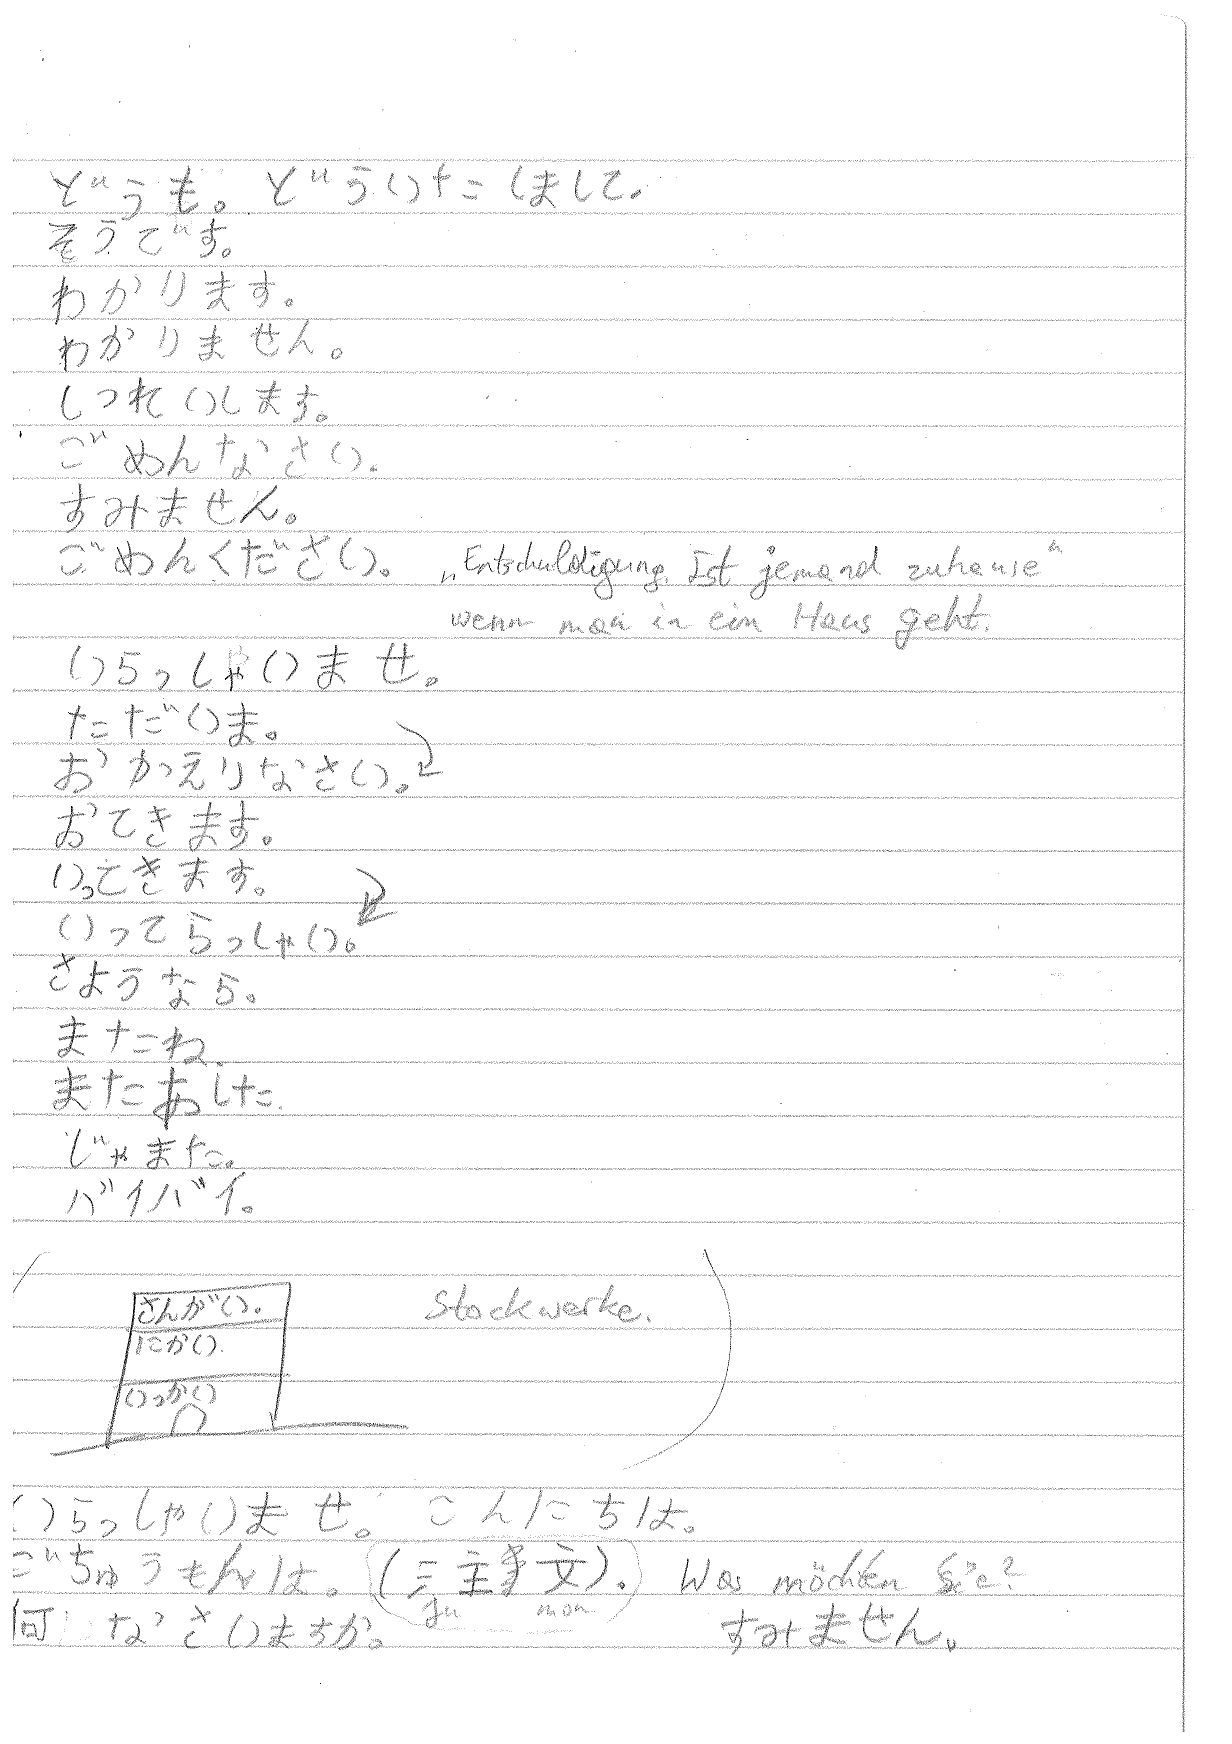 どうも。どういたしまして。
そうです。
わかります。
わかりません。
しつれいします。
ごめんなさい。
すみません。
ごめんください。 „Entschuldigung. Ist jemand zuhause“
wenn man in ein Haus geht.
いらっしゃいませ。
ただいま。
おかえりなさい。
おてきます。
いってきます。
いってらっしゃい。
さようなら。
またね.
またあした.
じゃまた。
バイバイ。
さんがい.
にかい.
いっかい
Stockwerke.
いらっしゃいませ。 こんにちは。
ごちゅうもんは。 Was möchten Sie?
ju mon
何 なさいますか。 すみません。